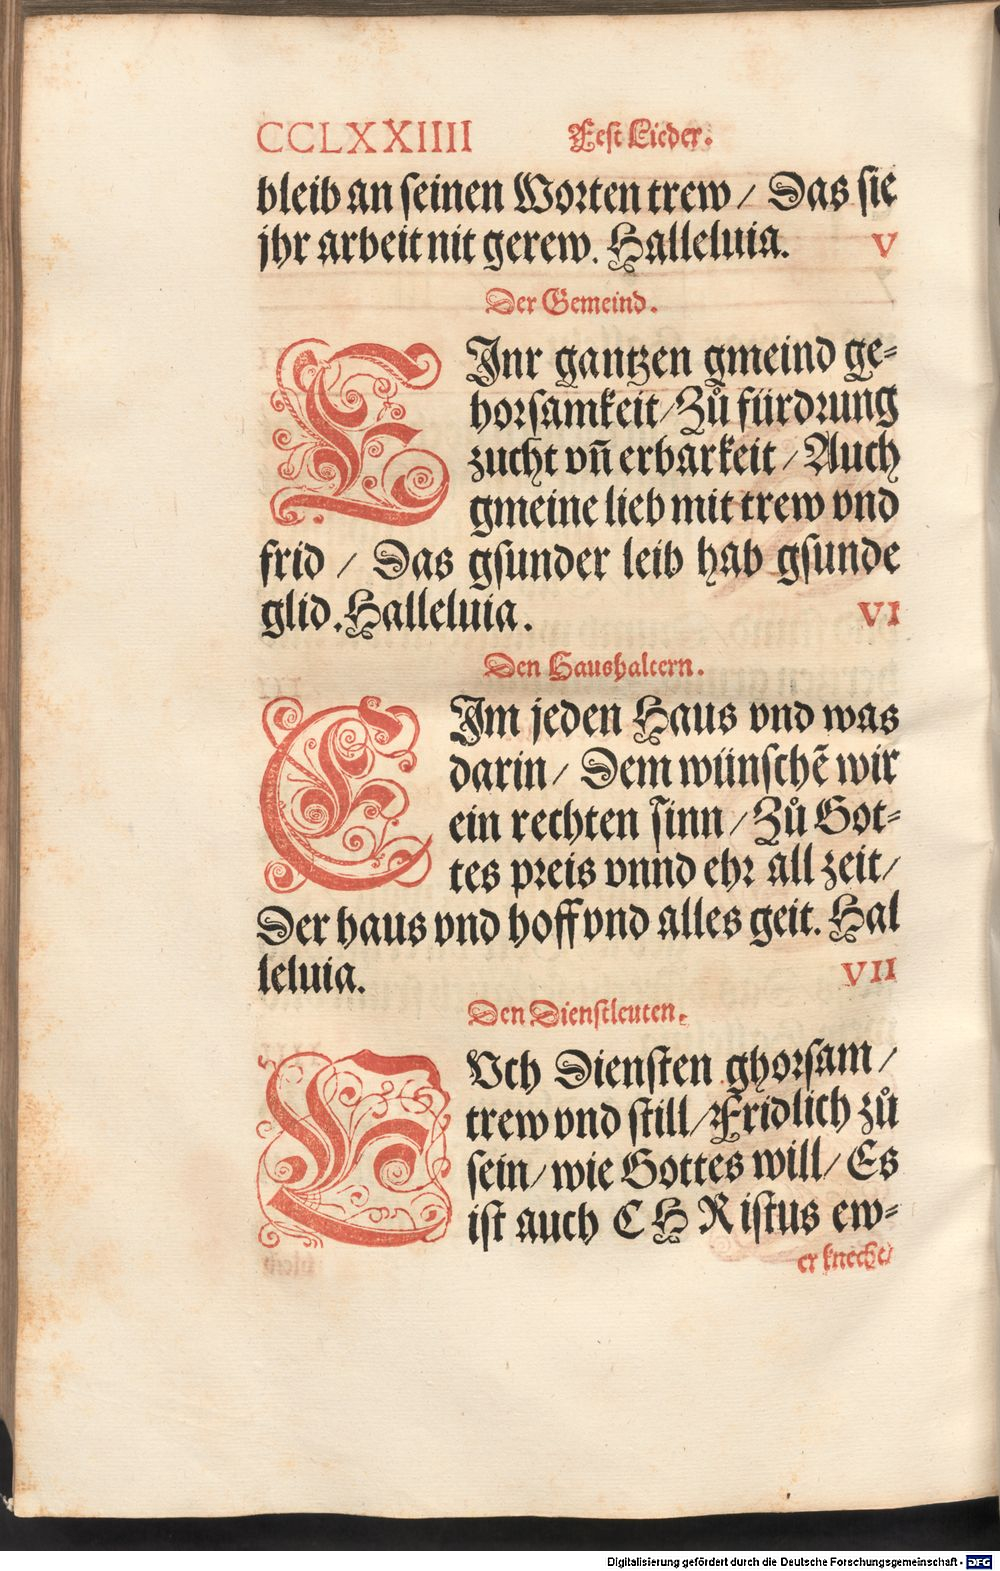 CCLXXIIII Feſt Lieder.
bleib an ſeinen Worten trew / Das ſie
jhr arbeit nit gerew. Halleluia. V
Der Gemeind.
EJnr gantzen gmeind ge=
horſamkeit / Zů fürdrung
zucht vñ erbarkeit / Auch
gmeine lieb mit trew vnd
frid / Das gſunder leib hab gſunde
glid. Halleluia. VI
Den Haushaltern.
EJm jeden Haus vnd was
darin / Dem wünſchẽ wir
ein rechten ſinn / Zů Got=
tes preis vnnd ehr all zeit /
Der haus vnd hoff vnd alles geit. Hal
leluia. VII
Den Dienſtleuten.
EVch Dienſten ghorſam /
trew vnd ſtill / Fridlich zů
ſein / wie Gottes will / Es
iſt auch CHRiſtus ew=
er knecht /
Digitalisierung gefördert durch die Deutsche Forschungsgemeinschaft - DFG